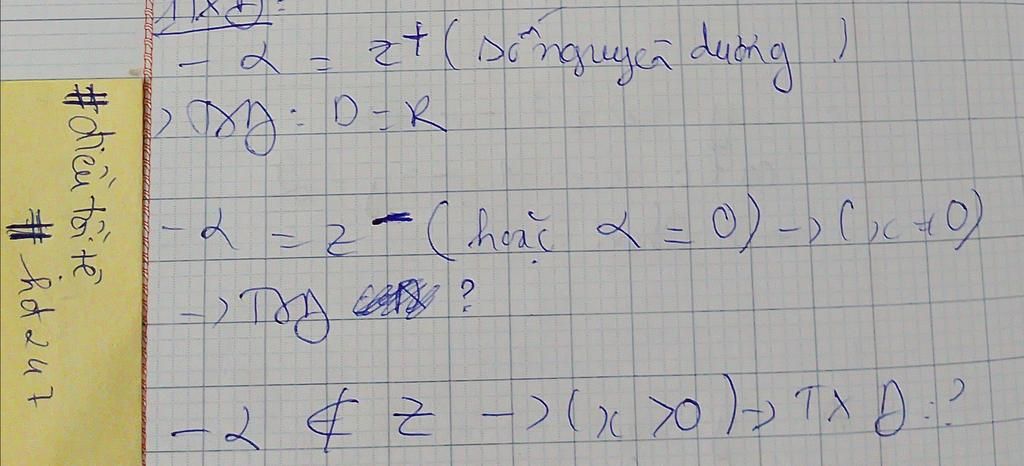 TXĐ:
- α = Z+ (Số nguyên dương)
> TXĐ: D = R
- α = Z - (hoặc α = 0) -> (x ≠ 0)
-> TXĐ ?
- α ⊄ Z -> (x > 0) -> TXĐ: ?
#điều tồi tệ
# hd247